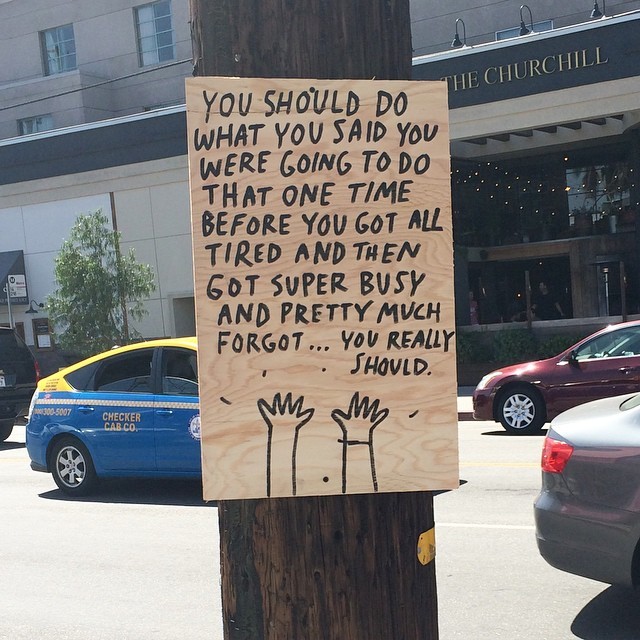 YOU SHOULD DO
WHAT YOU SAID YOU
WERE GOING TO DO
THAT ONE TIME
BEFORE YOU GOT ALL
TIRED AND THEN
GOT SUPER BUSY
AND PRETTY MUCH
FORGOT... YOU REALLY
SHOULD.
THE CHURCHILL
300-5007
CHECKER
CAB CO.